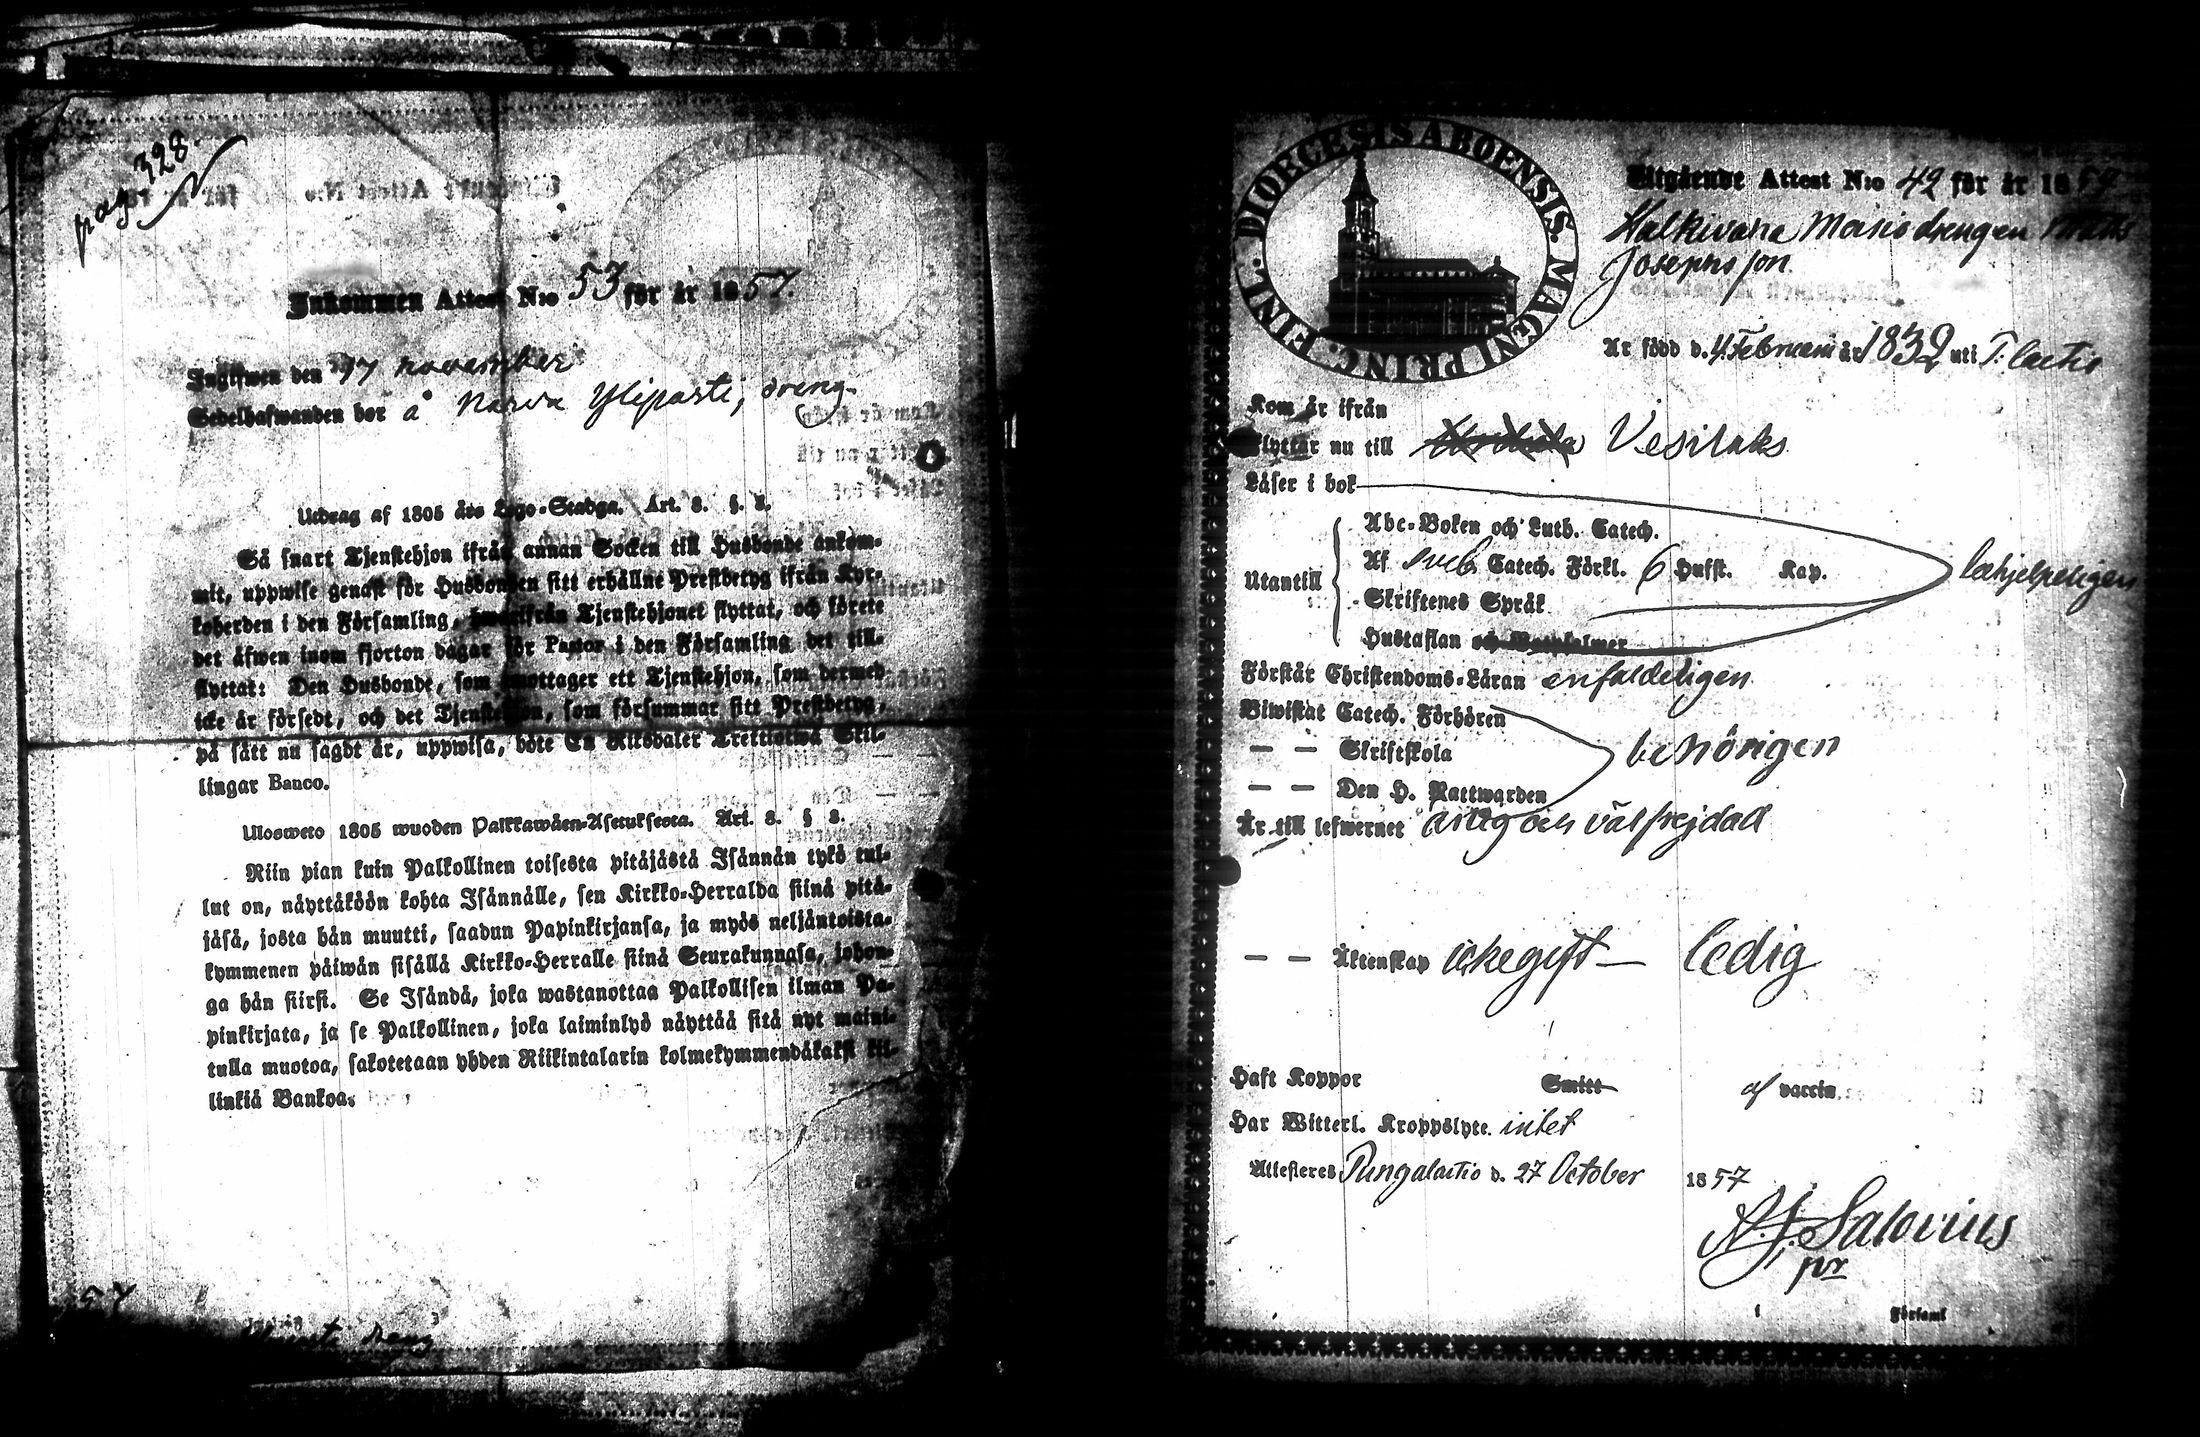 pag 328.
Inkommen Attest N:o 53 för år 1857.
Ingifwen den 17 november
Sedelhafwanden bor å Narva Yliparti, dreng.
Utdrag af 1805 års Lego-Stadga. Art. 8. §. 8.
Så snart Tjenstehjon ifrån annan Socken till Husbonde ankom-
mit, uppwise genast för Husbonden sitt erhållne Prestbetyg ifrån Kyr-
koherden i den Församling, hwarifrån Tjenstehjonet flyttat, och förete
det äfwen inom fjorton dagar för Pastor i den Församling det till-
flyttat: Den Husbonde, som emottager ett Tjenstehjon, som dermed
icke är försedt, och det Tjenstehjon, som försummar sitt Prestbetyg,
på sätt nu sagdt är, uppwisa, böte En Riksdaler Trettiotwå Skil-
lingar Banco.
Ulosweto 1805 wuoden Palkkawäen-Asetuksesta. Art. 8. § 8.
Niin pian kuin Palkollinen toisesta pitäjästä Isännän tykö tul-
lut on, näyttäköön kohta Isännälle, sen Kirkko-Herralda siinä pitä-
jäsä, josta hän muutti, saadun Papinkirjansa, ja myös neljäntoista-
kymmenen päiwän sisällä Kirkko-Herralle siinä Seurakunnasa, johon-
ga hän siirsi. Se Isändä, joka wastanottaa Palkollisen ilman Pa-
pinkirjata, ja se Palkollinen, joka laiminlyö näyttää sitä nyt maini-
tulla muotoa, sakotetaan yhden Riikintalarin kolmekymmendäkaksi kil-
linkiä Bankoa.
57
dreng
DIOECESIS ABOENSIS. MAGNI PRINC. FINL.
Utgående Attest N:o 42 för år 1857
Halkivaha Moisio drengen Matts
Josephsson
Är född d. 4 Februari år 1832 uti P: laitio
Kom år ifrån
Flyttar nu till Vesilaks
Läser i bok
Abc-Boken och Luth. Catech.
Utantill Af sveb. Catech. Förkl. 6 Hufst. Kap. behjelpeligen
Skriftenes Språk
Hustaflan och Botpsalmer
Förstår Christendoms-Läran enfaldeligen
Biwistat Catech. Förhören
— — Skriftskola behörigen
— — Den H. Nattwarden
Är till lefwernet ärlig och välfrejdad
— — Äktenskap icke gift — ledig
Haft Koppor Smitt af vaccin
Har Witterl. Kroppslyte intet
Attesteres Pungalaitio d. 27 October 1857
A. J. Salovius
pr
Församl